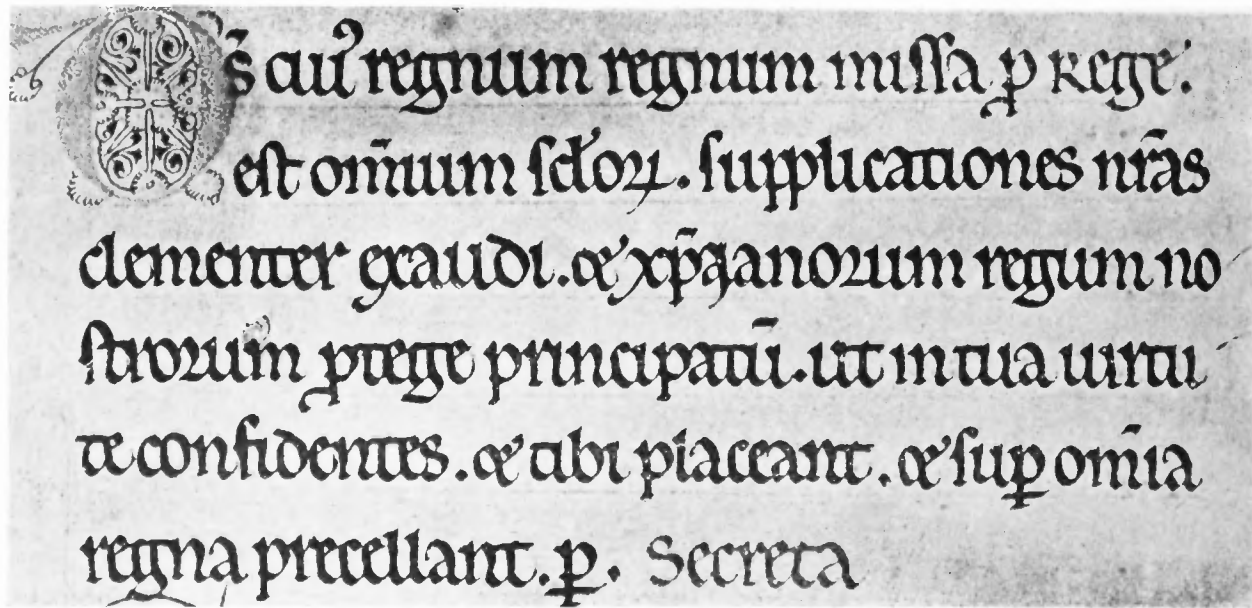 Ds̄ cuiꝰ regnum regnum missa p̱ Rege.
est om̄ium sc̄loꝝ. supplicationes nr̄as
clementer exaudi. et xp̄ianorum regum no
strorum ꝓtege principatū. ut in tua uirtu
te confidentes. et tibi placeant. et suꝑ om̄ia
regna precellant. ꝑ. Secreta